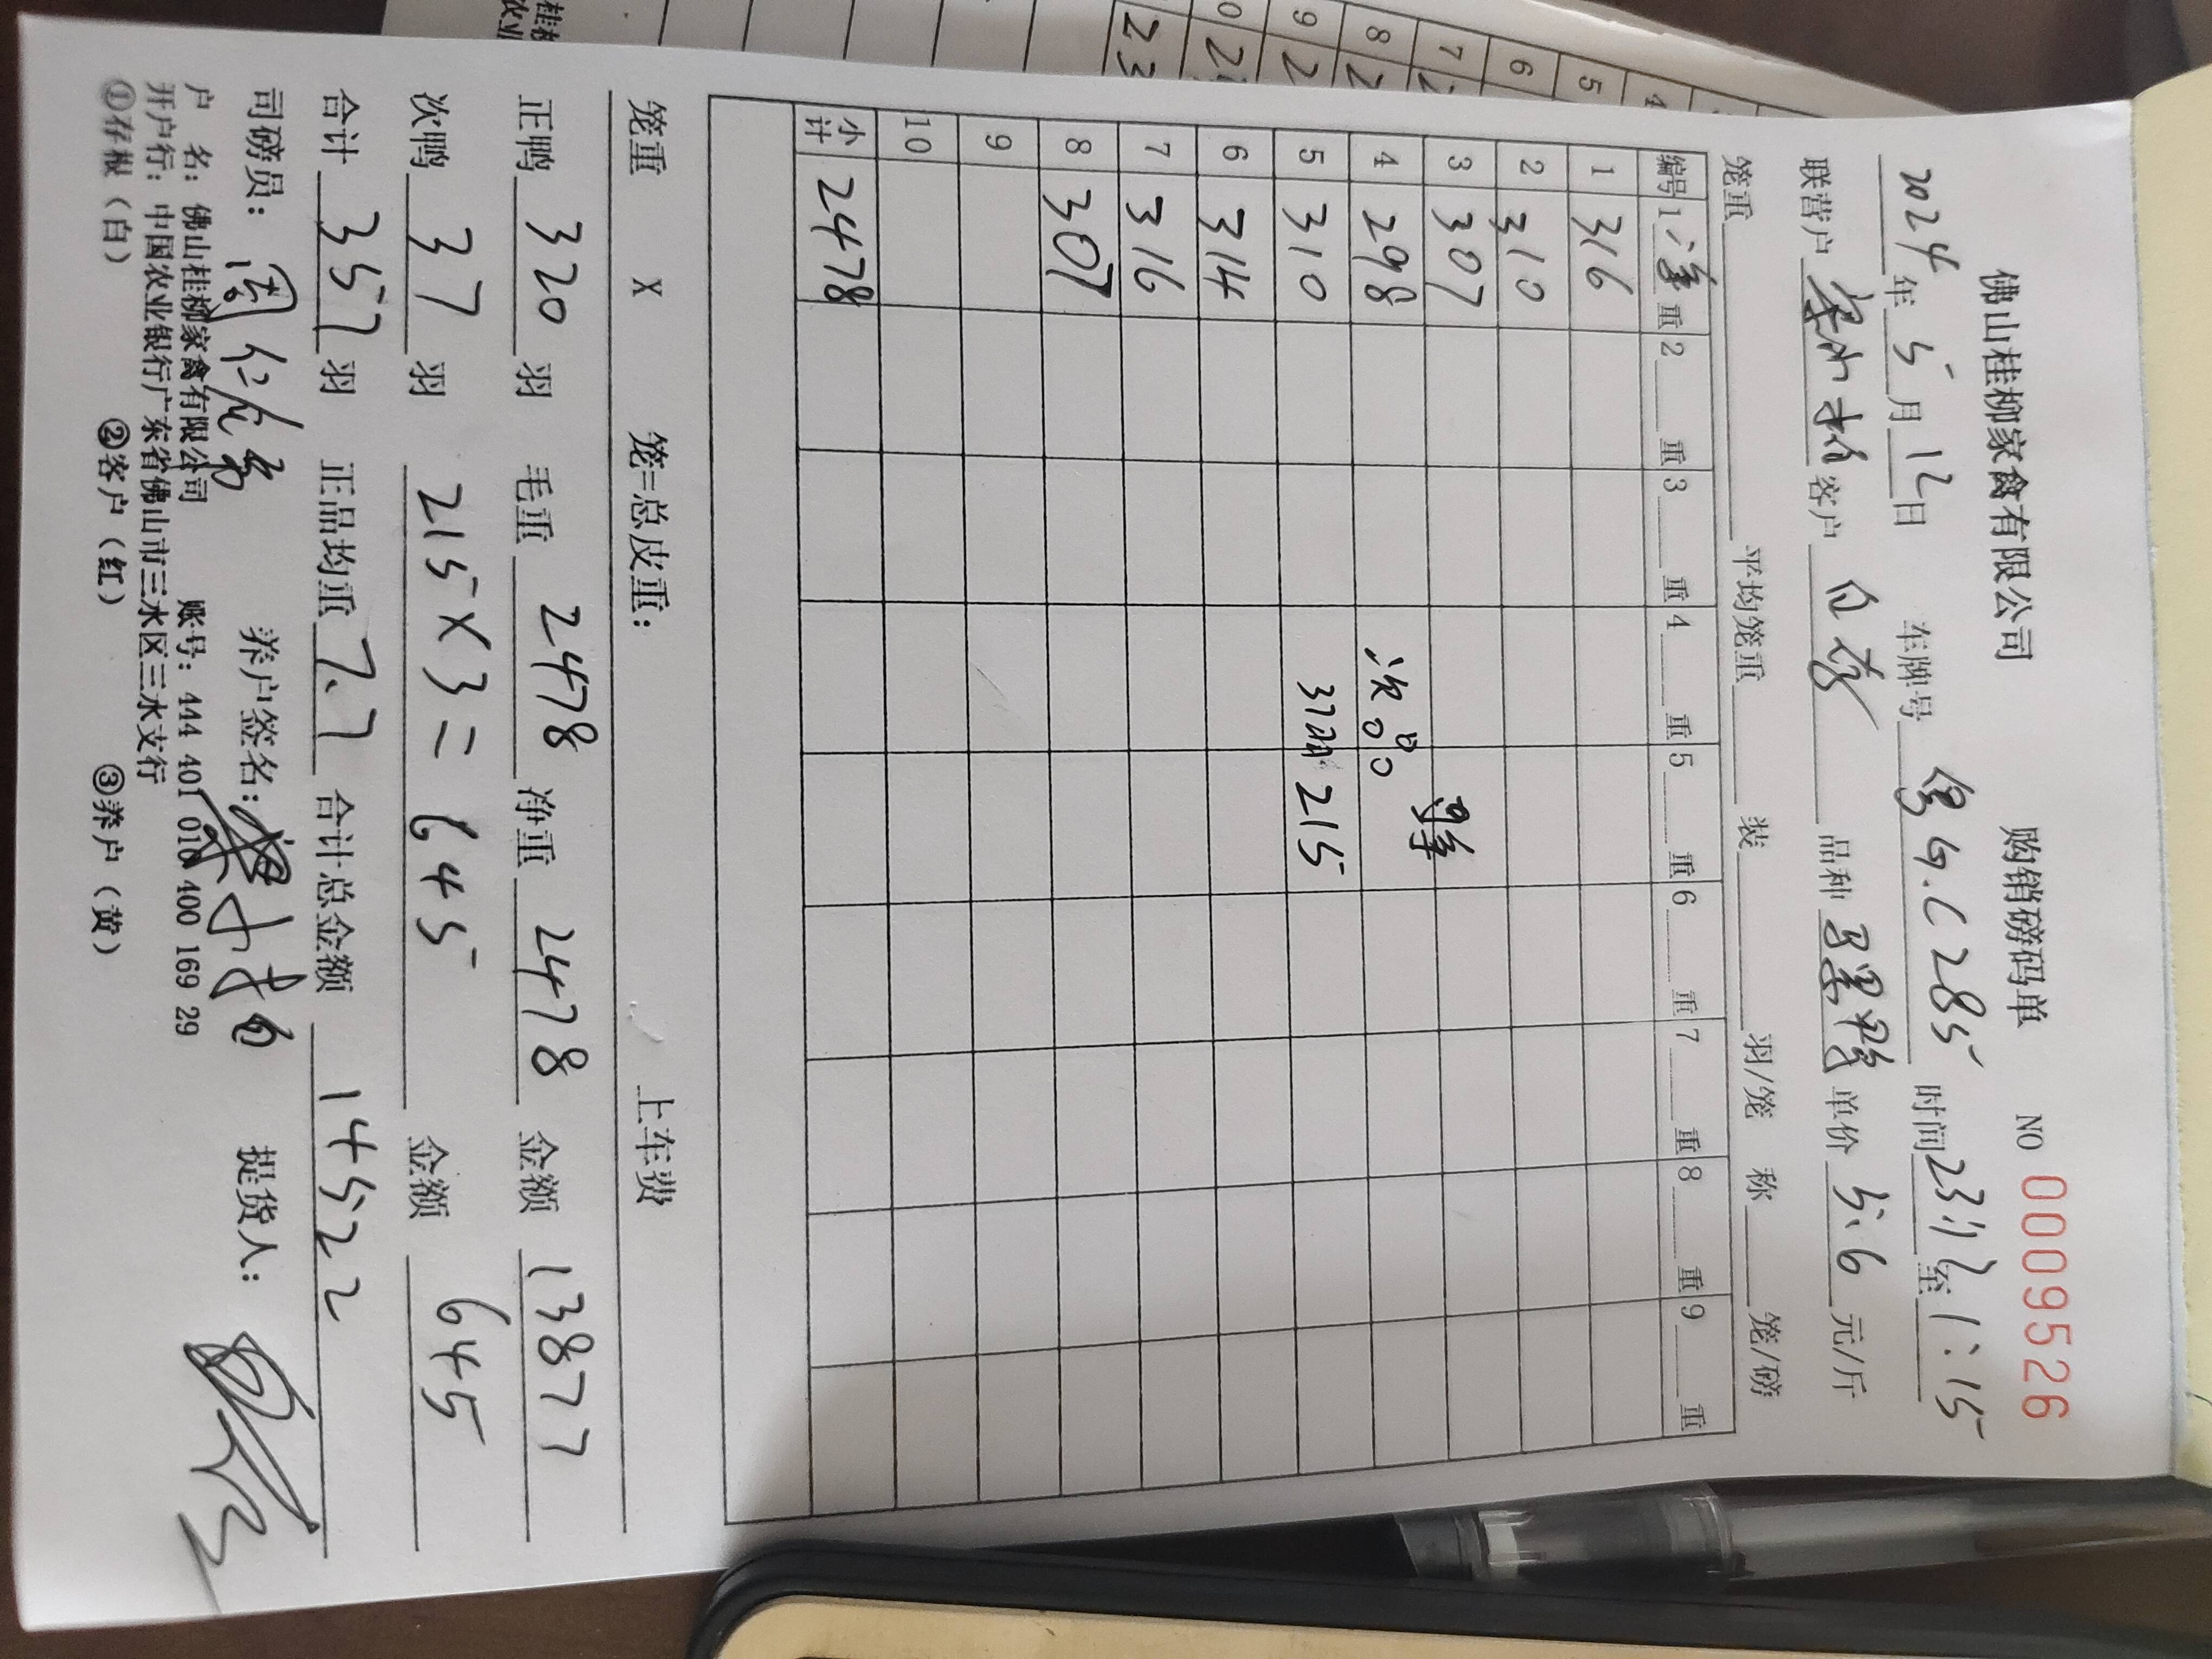 佛山桂柳家禽有限公司 购销磅码单 NO 00095526
2024年5月12日 车牌号 粤G.C285 时间 23:12至1:15
联营户 客户 品种 单价 5.6 元/斤
笼重 平均笼重 装 羽/笼 称 笼/磅
编号 1 净重 2 重 3 重 4 重 5 重 6 重 7 重 8 重 9 重
1 316
2 310
3 307 净
4 298 次品
5 310 37羽 215
6 314
7 316
8 307
9
10
小计 2478
笼重 X 笼=总皮重: 上车费
正鸭 320 羽 毛重 2478 净重 2478 金额 13877
次鸭 37 羽 215×3=645 金额 645
合计 357 羽 正品均重 7.7 合计总金额 14522
司磅员: 养户签名: 提货人:
户 名: 佛山桂柳家禽有限公司 账号: 444 401 010 400 169 29
开户行: 中国农业银行广东省佛山市三水区三水支行
①存根（白） ②客户（红） ③养户（黄）
10
9
8
7
6
5
4